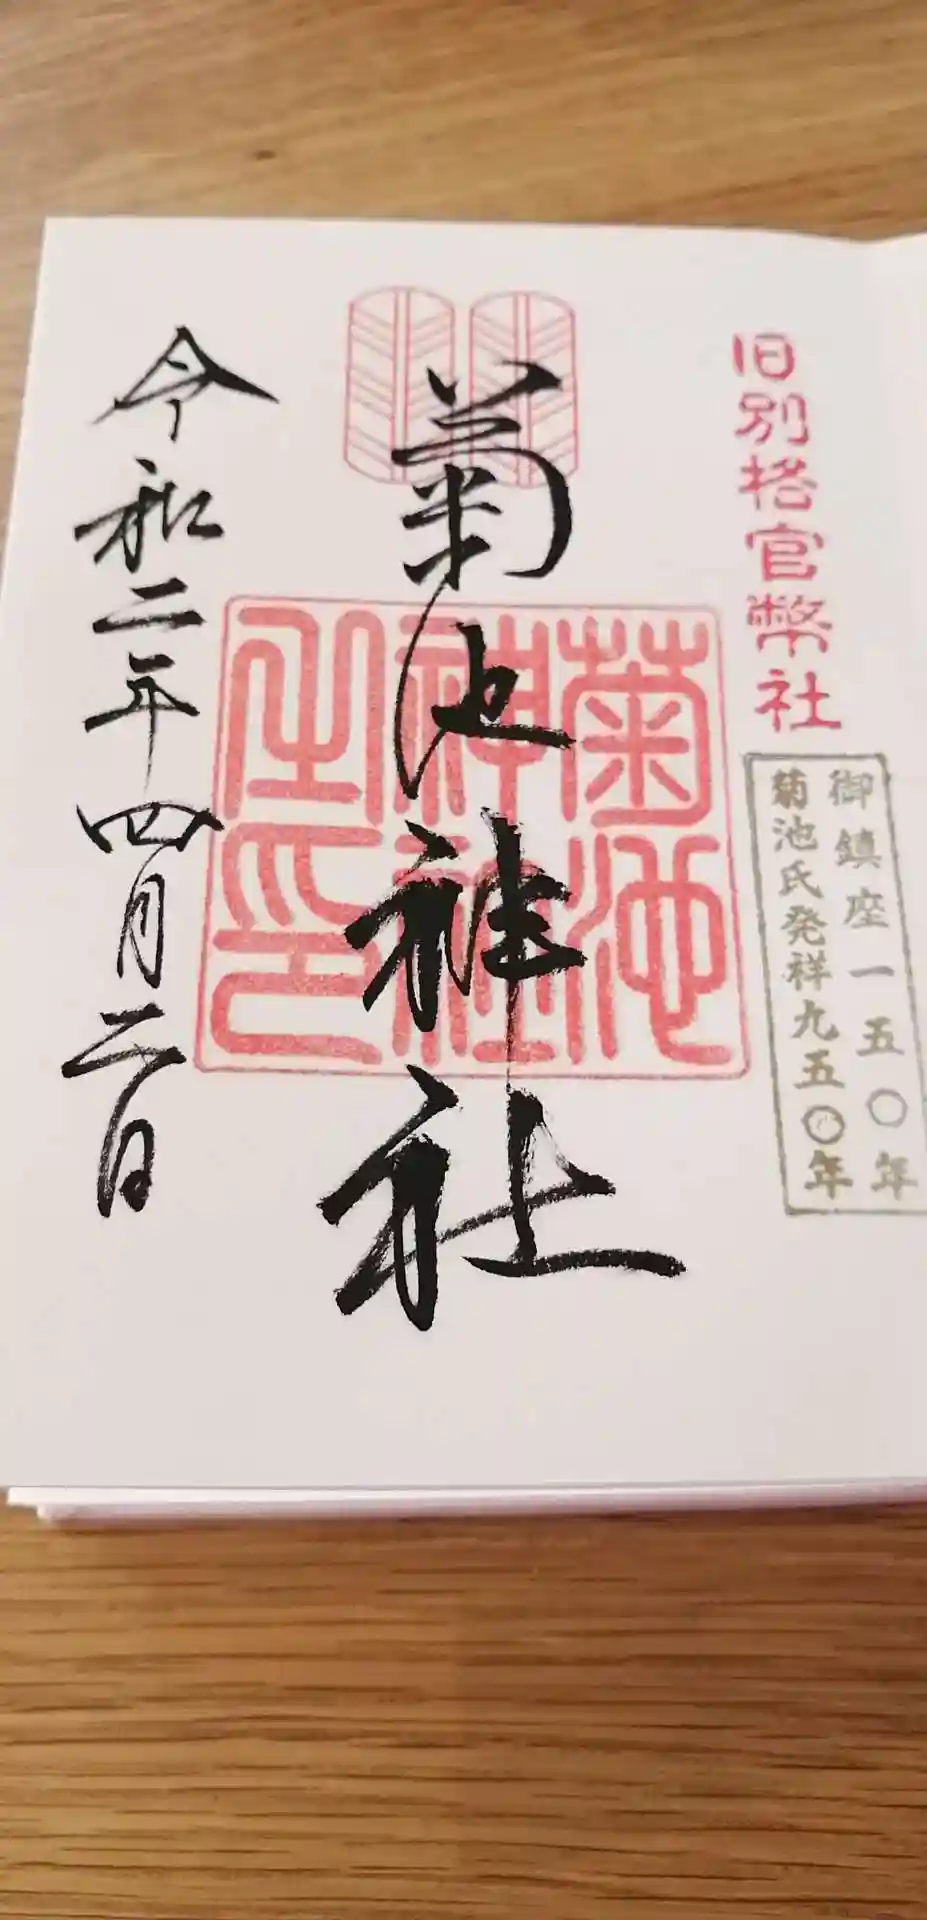 旧別格官幣社
御鎮座一五〇年
菊池氏発祥九五〇年
菊池神社
菊池
神社
之印
令和二年四月二日